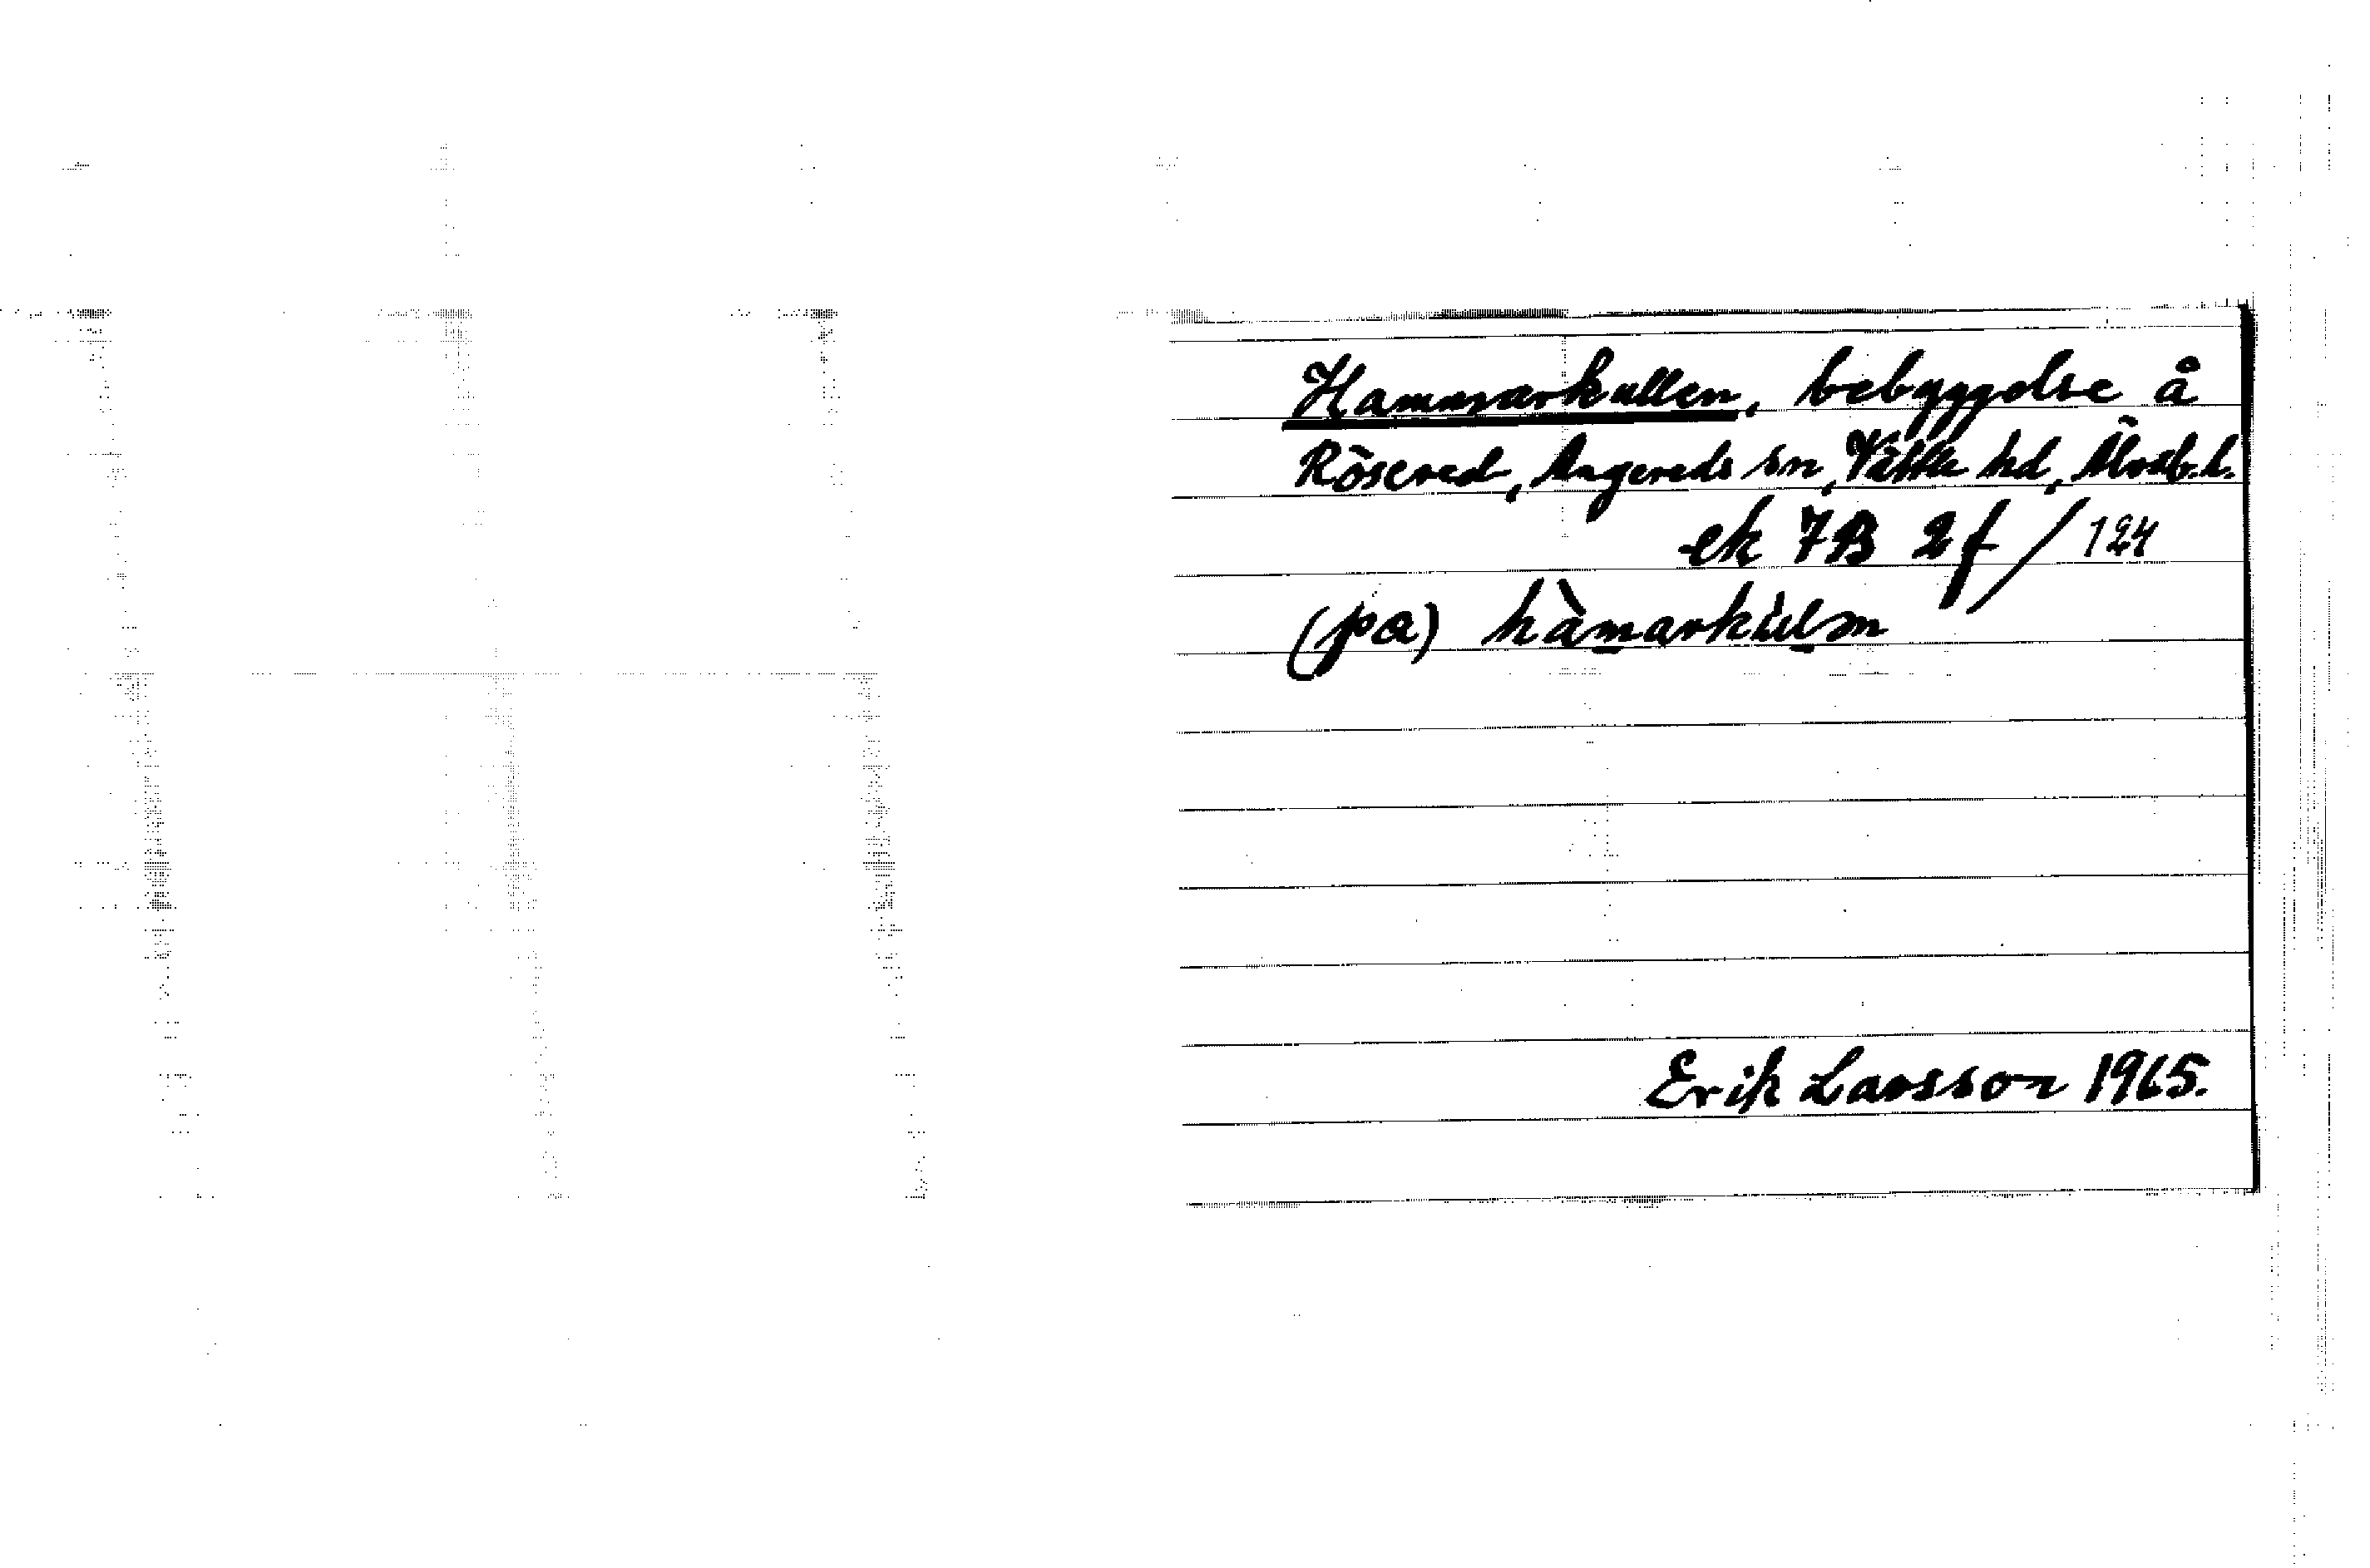 Hammarkullen, bebyggelse å
Rösered, Angereds sn, Vättle hd, Älvsb.l.
ek 7B 2f / 124
(pa) hàmarkùlən
Erik Larsson 1965.